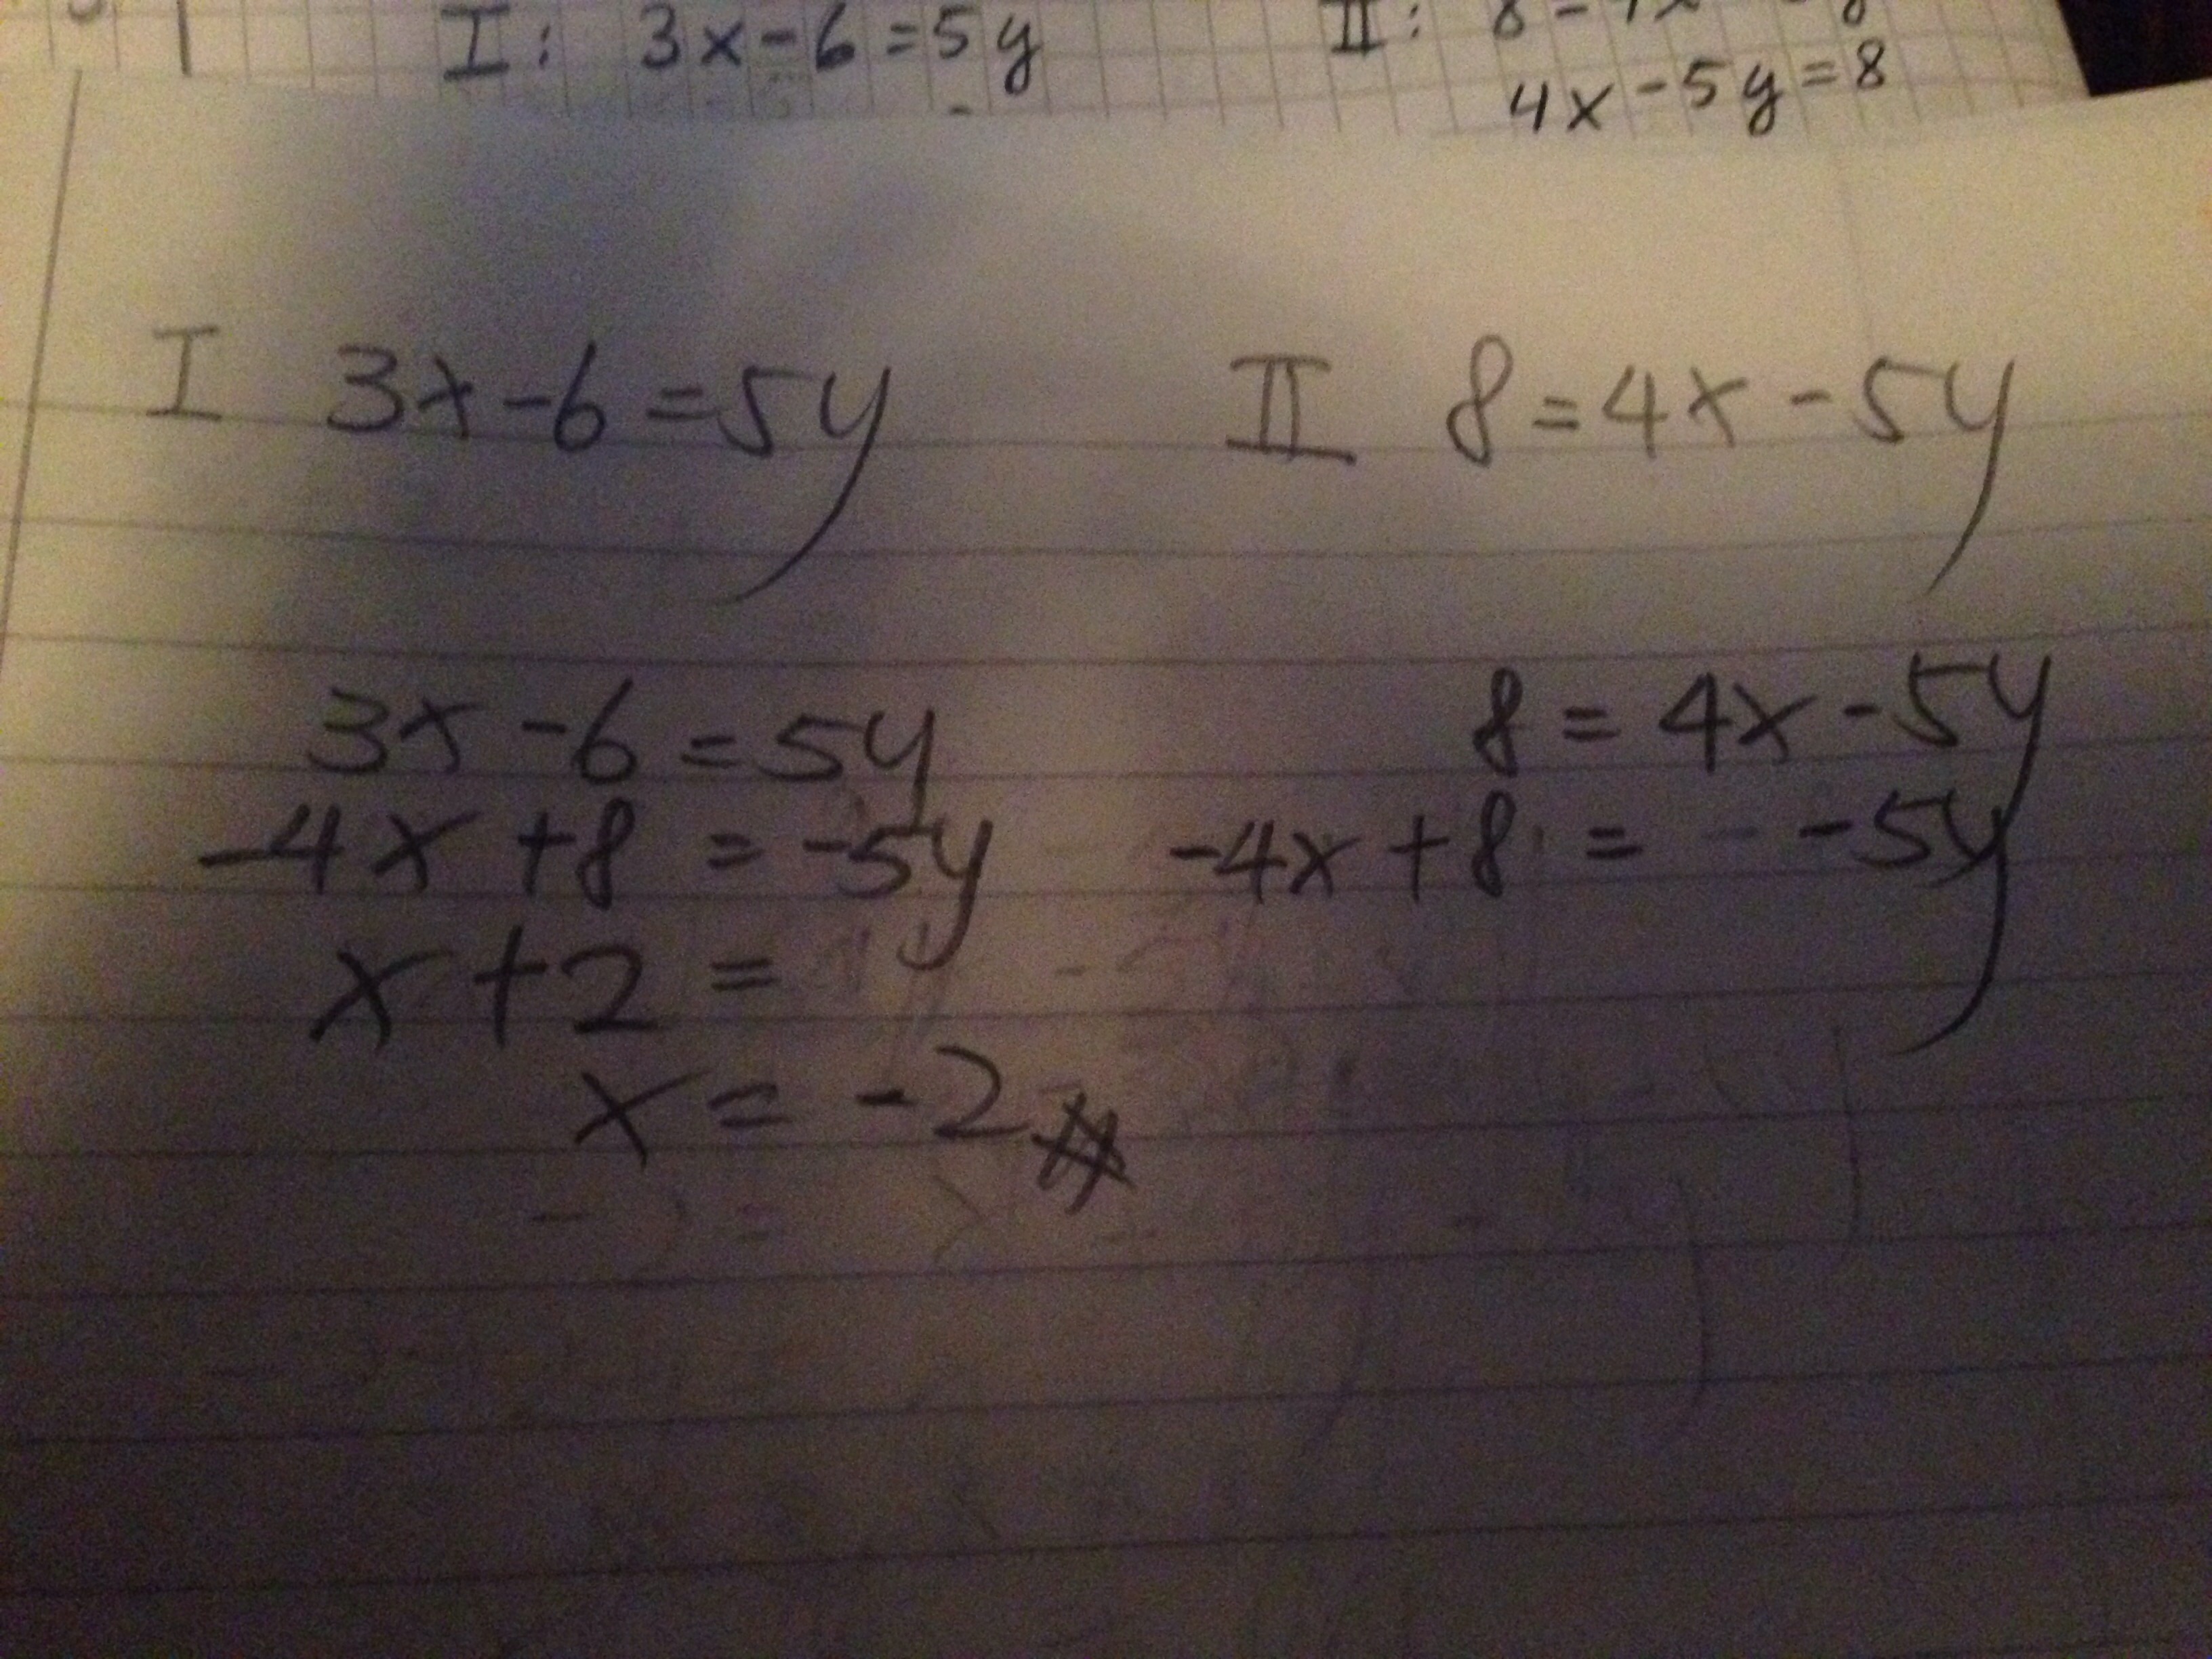 I: 3x-6=5y II:
4x-5y=8
I 3x-6=5y II 8=4x-5y
3x-6=5y 8=4x-5y
-4x+8=-5y -4x+8=-5y
x+2=
x=-2